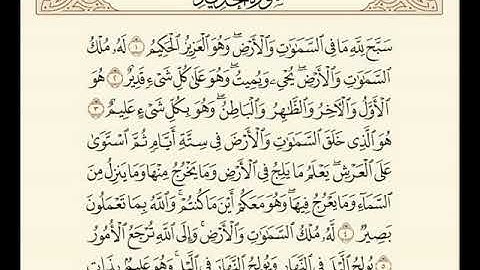 سُورَةُ الحَدِيدِ
سَبَّحَ لِلَّهِ مَا فِي السَّمَٰوَٰتِ وَالْأَرْضِ ۖ وَهُوَ الْعَزِيزُ الْحَكِيمُ ١ لَهُۥ مُلْكُ
السَّمَٰوَٰتِ وَالْأَرْضِ ۖ يُحْيِۦ وَيُمِيتُ ۖ وَهُوَ عَلَىٰ كُلِّ شَيْءٍ قَدِيرٌ ٢ هُوَ
الْأَوَّلُ وَالْآخِرُ وَالظَّٰهِرُ وَالْبَاطِنُ ۖ وَهُوَ بِكُلِّ شَيْءٍ عَلِيمٌ ٣
هُوَ الَّذِي خَلَقَ السَّمَٰوَٰتِ وَالْأَرْضَ فِي سِتَّةِ أَيَّامٍ ثُمَّ اسْتَوَىٰ
عَلَى الْعَرْشِ ۚ يَعْلَمُ مَا يَلِجُ فِي الْأَرْضِ وَمَا يَخْرُجُ مِنْهَا وَمَا يَنزِلُ مِنَ
السَّمَآءِ وَمَا يَعْرُجُ فِيهَا ۖ وَهُوَ مَعَكُمْ أَيْنَ مَا كُنتُمْ ۚ وَاللَّهُ بِمَا تَعْمَلُونَ
بَصِيرٌ ٤ لَّهُۥ مُلْكُ السَّمَٰوَٰتِ وَالْأَرْضِ ۚ وَإِلَى اللَّهِ تُرْجَعُ الْأُمُورُ
٥ يُولِجُ الَّيْلَ فِي النَّهَارِ وَيُولِجُ النَّهَارَ فِي الَّيْلِ ۚ وَهُوَ عَلِيمٌۢ بِذَاتِ